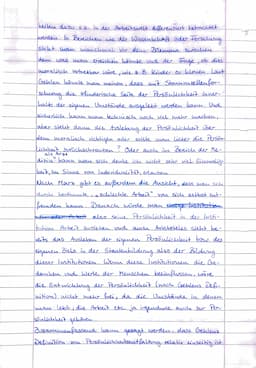 sollten dazu z.B. in der Arbeitswelt differenziert betrachtet
werden. In Bereichen wie der Wissenschaft oder Forschung
steht man manchmal vor dem Dilemma zwischen
dem was man erreichen könnte und der Frage, ob dies
moralisch vertretbar wäre, wie z.B. Kinder zu klonen. Laut
Gehlen könnte man meinen, dass mit Stammzellenfor-
schung die künstlerische Seite der Persönlichkeit inner-
halb der eigenen Umstände ausgelebt werden kann. Und
sicherlich kann man technisch noch viel mehr machen,
aber steht dann die Erziehung der Persönlichkeit über
dem moralisch richtigen oder sollte man lieber die Persön-
lichkeit zurückschrauben? Oder auch im Bereich der Me-
dizin kann man sich denke ich nicht sehr viel
im Sinne von Individualität erlauben.
Nach Marx gibt es außerdem die Ansicht, dass man sich
durch bestimmte, "schlechte Arbeit" von sich selbst ent-
fremden kann. Danach würde man
also seine Persönlichkeit in der Insti-
tution Arbeit verlieren und auch Aristoteles sieht be-
reits das Ausleben der eigenen Persönlichkeit bzw. des
eigenen Seins in der Staatenbildung also der Bildung
dieser Institutionen. Wenn diese Institutionen die Ge-
danken und Werte der Menschen beeinflussen, wäre
die Entwicklung der Persönlichkeit (nach Gehlens Defi-
nition) nicht mehr frei, da die Umstände in denen
man lebt, die Arbeit etc. ja irgendwie auch zur Per-
sönlichkeit gehören.
Zusammenfassend kann gesagt werden, dass Gehlens
Definition von Persönlichkeitsentfaltung relativ einseitig ist